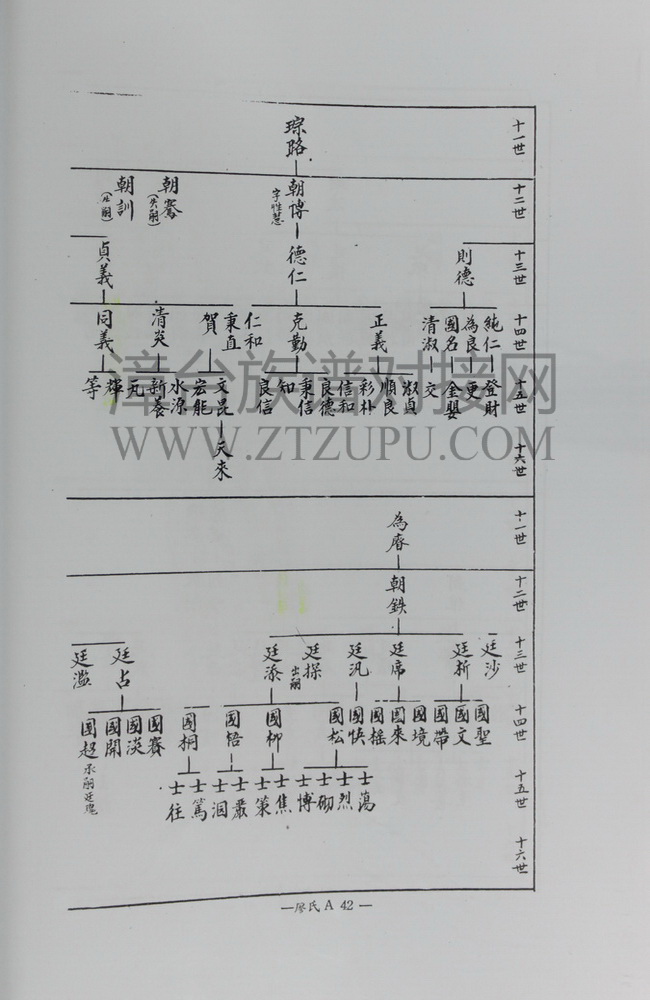 十一世
琮略
十二世
朝博
字性慧
朝騫
(失嗣)
朝訓
(出嗣)
十三世
則德
德仁
貞義
十四世
純仁
為良
國名
清淑
正義
克勤
仁和
秉直
賀
清炎
同義
十五世
登財
更
金嬰
交
淑貞
順良
彩朴
信和
良德
秉信
知
良信
文昆
宏能
水源
新養
元
輝
等
十六世
天來
漳台族谱对接网
WWW.ZTZUPU.COM
十一世
為
十二世
朝鉄
十三世
廷沙
廷析
廷席
廷汎
廷探
出嗣
廷添
廷占
廷濫
十四世
國聖
國文
國帶
國境
國來
國榣
國快
國松
國柳
國悟
國桐
國賽
國淡
國開
國超
承嗣廷
十五世
士蕩
士烈
士砌
士博
士焦
士策
士嚴
士涸
士篤
士往
十六世
—廖氏 A 42 —